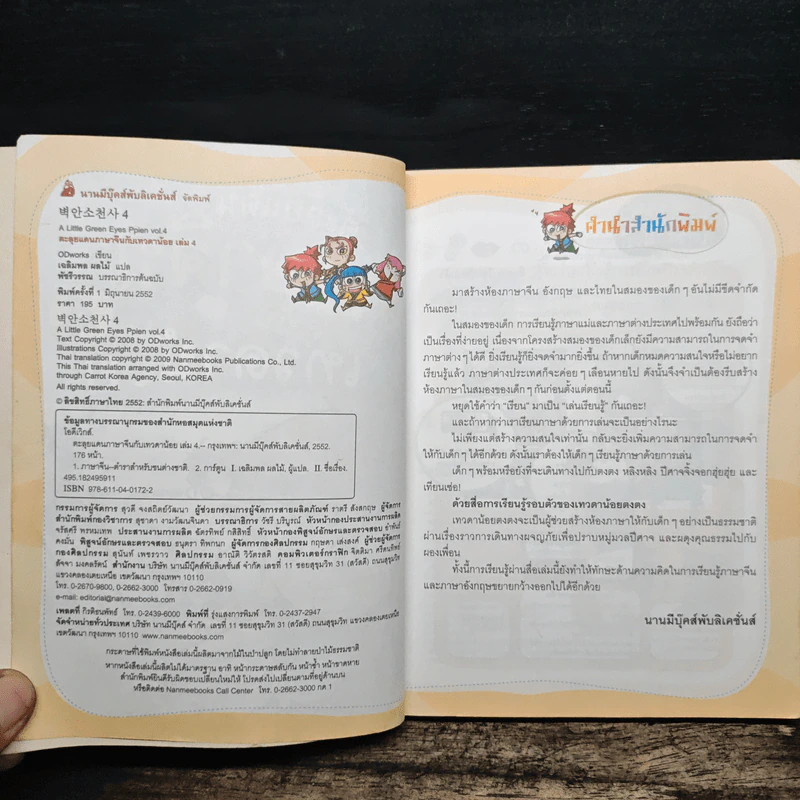 นานมีบุ๊คส์พับลิเคชั่นส์ จัดพิมพ์
벽안소천사 4
A Little Green Eyes Ppien vol.4
ตะลุยแดนภาษาจีนกับเทวดาน้อย เล่ม 4
ODworks เขียน
เฉลิมพล ผลไม้ แปล
พัชรีวรรณ บรรณาธิการต้นฉบับ
พิมพ์ครั้งที่ 1 มิถุนายน 2552
ราคา 195 บาท
벽안소천사 4
A Little Green Eyes Ppien vol.4
Text Copyright © 2008 by ODworks Inc.
Illustrations Copyright © 2008 by ODworks Inc.
Thai translation copyright © 2009 Nanmeebooks Publications Co., Ltd.
This Thai translation arranged with ODworks Inc.
through Carrot Korea Agency, Seoul, KOREA
All rights reserved.
© ลิขสิทธิ์ภาษาไทย 2552: สำนักพิมพ์นานมีบุ๊คส์พับลิเคชั่นส์
ข้อมูลทางบรรณานุกรมของสำนักหอสมุดแห่งชาติ
โอดีเวิกส์.
ตะลุยแดนภาษาจีนกับเทวดาน้อย เล่ม 4.-- กรุงเทพฯ: นานมีบุ๊คส์พับลิเคชั่นส์, 2552.
176 หน้า.
1. ภาษาจีน--ตำราสำหรับชนต่างชาติ. 2. การ์ตูน I. เฉลิมพล ผลไม้, ผู้แปล. II. ชื่อเรื่อง.
495.182495911
ISBN 978-611-04-0172-2
กรรมการผู้จัดการ สุวดี จงสถิตย์วัฒนา ผู้ช่วยกรรมการผู้จัดการสายผลิตภัณฑ์ ราตรี สังสกฤษ ผู้จัดการ
สำนักพิมพ์กองวิชาการ สุชาดา งามวัฒนจินดา บรรณาธิการ วัชรี บริบูรณ์ หัวหน้ากองประสานงานการผลิต
จรัสศรี พรหมเทพ ประสานงานการผลิต ฉัตรทิพย์ กสิสิทธิ์ หัวหน้ากองพิสูจน์อักษรและตรวจสอบ อำพันธ์
คงมั่น พิสูจน์อักษรและตรวจสอบ ธนุตรา ทิพกนก ผู้จัดการกองศิลปกรรม กฤษดา เส่งสงค์ ผู้ช่วยผู้จัดการ
กองศิลปกรรม สุนันท์ เพชรวาว ศิลปกรรม อาณัติ วิวัตรสติ คอมพิวเตอร์กราฟิก จิตติมา ศรีตนทิพย์
อัจจา มงคลรัตน์ สำนักงาน บริษัท นานมีบุ๊คส์ จำกัด เลขที่ 11 ซอยสุขุมวิท 31 (สวัสดี) ถนนสุขุมวิท
แขวงคลองเตยเหนือ เขตวัฒนา กรุงเทพฯ 10110
โทร. 0-2670-9800, 0-2662-3000 โทรสาร 0-2662-0919
e-mail: editorial@nanmeebooks.com
เพลตที่ กิรติธนพัทธ์ โทร. 0-2439-6000 พิมพ์ที่ รุ่งแสงการพิมพ์ โทร. 0-2437-2947
จัดจำหน่ายทั่วประเทศ บริษัท นานมีบุ๊คส์ จำกัด เลขที่ 11 ซอยสุขุมวิท 31 (สวัสดี) ถนนสุขุมวิท แขวงคลองเตยเหนือ
เขตวัฒนา กรุงเทพฯ 10110 www.nanmeebooks.com
กระดาษที่ใช้พิมพ์หนังสือเล่มนี้ผลิตมาจากไม้ในป่าปลูก โดยไม่ทำลายป่าไม้ธรรมชาติ
หากหนังสือเล่มนี้ผลิตไม่ได้มาตรฐาน อาทิ หน้ากระดาษสลับกัน หน้าซ้ำ หน้าขาดหาย
สำนักพิมพ์ยินดีรับผิดชอบเปลี่ยนใหม่ให้ โปรดส่งไปเปลี่ยนตามที่อยู่ด้านบน
หรือติดต่อ Nanmeebooks Call Center โทร. 0-2662-3000 กด 1
คำนำสำนักพิมพ์
มาสร้างห้องภาษาจีน อังกฤษ และไทยในสมองของเด็ก ๆ อันไม่มีขีดจำกัด
กันเถอะ!
ในสมองของเด็ก การเรียนรู้ภาษาแม่และภาษาต่างประเทศไปพร้อมกัน ยังถือว่า
เป็นเรื่องที่ง่ายอยู่ เนื่องจากโครงสร้างสมองของเด็กเล็กยังมีความสามารถในการจดจำ
ภาษาต่าง ๆ ได้ดี ยิ่งเรียนรู้ก็ยิ่งจดจำมากยิ่งขึ้น ถ้าหากเด็กหมดความสนใจหรือไม่อยาก
เรียนรู้แล้ว ภาษาต่างประเทศก็จะค่อย ๆ เลือนหายไป ดังนั้นจึงจำเป็นต้องรีบสร้าง
ห้องภาษาในสมองของเด็ก ๆ กันก่อนตั้งแต่ตอนนี้
หยุดใช้คำว่า “เรียน” มาเป็น “เล่นเรียนรู้” กันเถอะ!
และถ้าหากว่าเราเรียนภาษาด้วยการเล่นจะเป็นอย่างไรนะ
ไม่เพียงแต่สร้างความสนใจเท่านั้น กลับจะยิ่งเพิ่มความสามารถในการจดจำ
ให้กับเด็ก ๆ ได้อีกด้วย ดังนั้นเราต้องให้เด็ก ๆ เรียนรู้ภาษาด้วยการเล่น
เด็ก ๆ พร้อมหรือยังที่จะเดินทางไปกับตงตง หลิงหลิง ปีศาจจิ้งจอกฮุ่ยฮุ่ย และ
เทียนเซ่อ!
ด้วยสื่อการเรียนรู้รอบตัวของเทวดาน้อยตงตง
เทวดาน้อยตงตงจะเป็นผู้ช่วยสร้างห้องภาษาให้กับเด็ก ๆ อย่างเป็นธรรมชาติ
ผ่านเรื่องราวการเดินทางผจญภัยเพื่อปราบหมู่มวลปีศาจ และผดุงคุณธรรมไปกับ
ผองเพื่อน
ทั้งนี้การเรียนรู้ผ่านสื่อเล่มนี้ยังทำให้ทักษะด้านความคิดในการเรียนรู้ภาษาจีน
และภาษาอังกฤษขยายกว้างออกไปได้อีกด้วย
นานมีบุ๊คส์พับลิเคชั่นส์